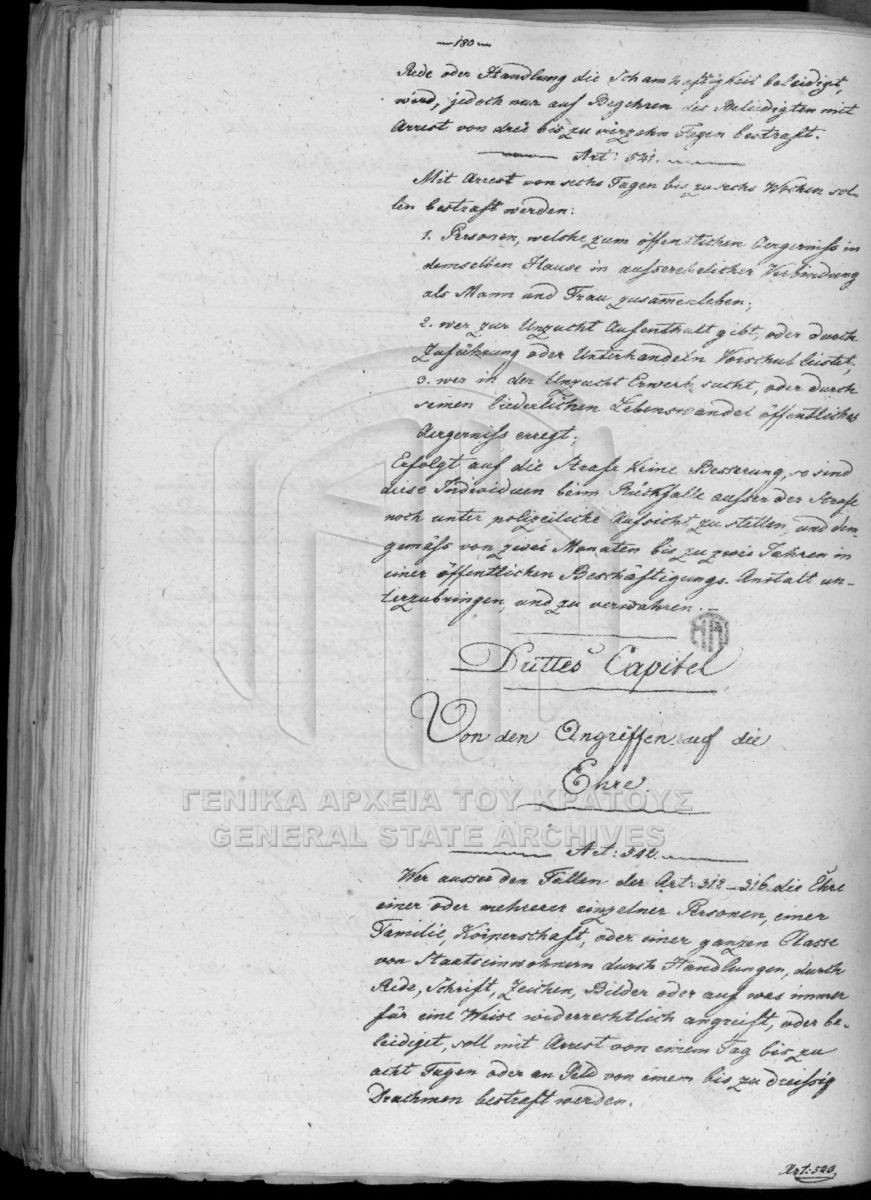 — 180 —
Rede oder Handlung die Schamhaftigkeit beleidigt,
wird, jedoch nur auf Begehren des Beleidigten mit
Arrest von drei bis zu vierzehn Tagen bestraft.
Art: 541.
Mit Arrest von sechs Tagen bis zu sechs Wochen sol-
len bestraft werden:
1. Personen, welche zum öffentlichen Aergerniss in
demselben Hause in ausserehelicher Verbindung
als Mann und Frau zusammenleben;
2. wer zur Unzucht Aufenthalt gibt, oder durch
Zuführung oder Unterhandeln Vorschub leistet,
3. wer in der Unzucht Erwerb sucht, oder durch
seinen liederlichen Lebenswandel öffentliches
Aergerniss erregt;
Erfolgt auf die Strafe keine Besserung, so sind
diese Individuen beim Rückfalle ausser der Strafe
noch unter polizeiliche Aufsicht zu stellen, und dem-
gemäss von zwei Monaten bis zu zwei Jahren in
einer öffentlichen Beschäftigungs-Anstalt un-
terzubringen und zu verwahren.
Drittes Capitel
Von den Angriffen auf die
Ehre.
ΓΕΝΙΚΑ ΑΡΧΕΙΑ ΤΟΥ ΚΡΑΤΟΥΣ
GENERAL STATE ARCHIVES
Art: 542.
Wer ausser den Fällen der Art: 312–316 die Ehre
einer oder mehrerer einzelner Personen, einer
Familie, Körperschaft, oder einer ganzen Classe
von Staatseinwohnern durch Handlungen, durch
Rede, Schrift, Zeichen, Bilder oder auf was immer
für eine Weise widerrechtlich angreift, oder be-
leidiget, soll mit Arrest von einem Tag bis zu
acht Tagen oder an Geld von einem bis zu dreissig
Drachmen bestraft werden.
Art: 543